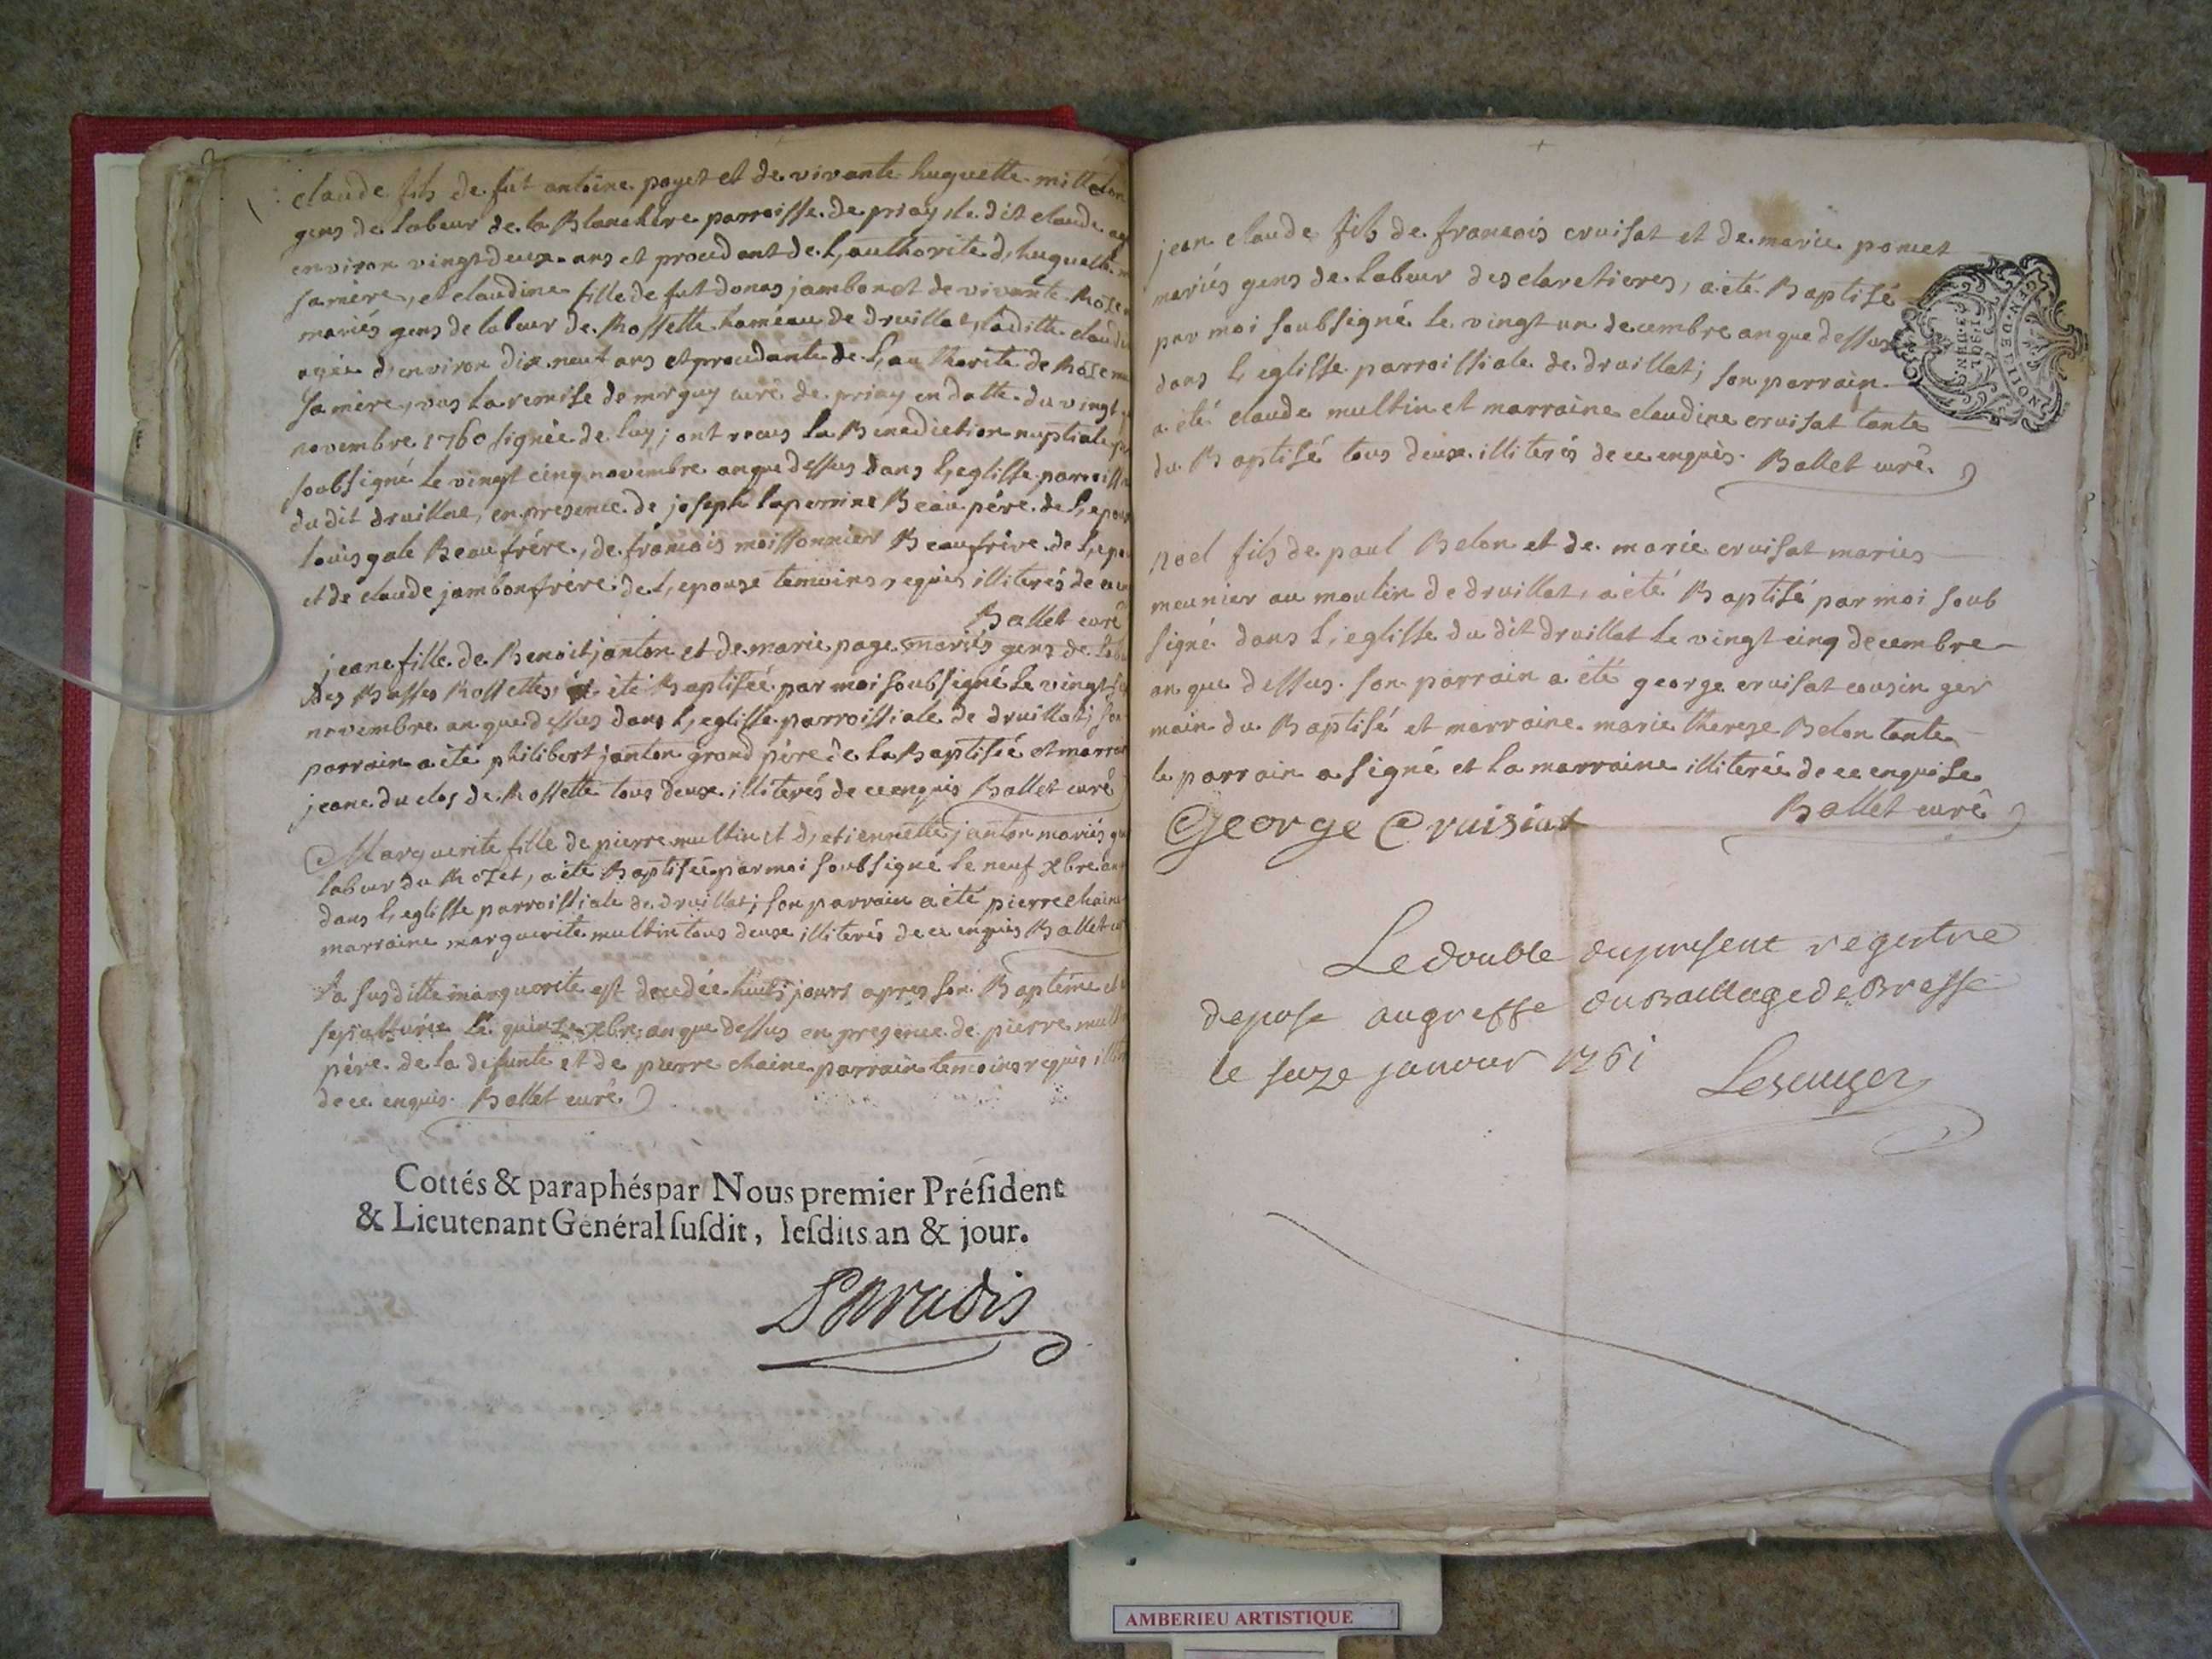 claude fils de fut antoine poget et de vivante huguette
gens de labeur de la Blanchere parroisse de priay, le dit claude
environ vingt deux ans et procedant de l,authorité d,huguette
sa mère, et claudine fille de fut jambon et de vivante
mariés gens de labeur de Rossette hameau de druillat, laditte
agée d,environ dix neuf ans et procedante de l,authorité de
sa mère, vus la remise de mr guy curé de priay en datte du vingt
novembre 1760 signée de luy; ont recus la Benediction nuptiale
soubsigné le vingt cinq novembre an que dessus dans l,eglisse
du dit druillat, en presence de joseph laperrine Beau père de
louis gale Beau frére, de francois moissonnier Beaufrére de
et de claude jambon frére de l,epouse temoins requis illiterés de
Ballet curé
jeane fille de Benoit janton et de marie page mariés gens de
des Basses Rossettes, été Baptisée par moi soubsigné le vingt
novembre an que dessus dans l,eglisse parroissiale de druillat;
parrain a été philibert janton grand pére de la Baptisée et
jeane du clos de Rossette tous deux illiterés de ce enquis Ballet curé
Marguerite fille de pierre multin et d,etiennette janton mariés
labeur du Rozet, a été Baptisée par moi soubsigné le neuf xbre
dans l,eglisse parroissiale de druillat; son parrain a été pierre
marraine marguerite multin tous deux illiterés de ce enquis Ballet
la susditte marguerite est decedée huit jours apres son Baptéme
le quinze xbre an que dessus en presence de pierre
pére de la defunte et de pierre chaine parrain temoins requis
de ce enquis. Ballet curé
Cottés & paraphés par Nous premier Préſident
& Lieutenant Général ſuſdit, leſdits an & jour.
Paradis
jean claude fils de francois cruisat et de marie poncet
mariés gens de labeur des claretieres, a été Baptisé
par moi soubsigné le vingt un decembre an que dessus
dans l,eglisse parroissiale de druillat; son parrain
a été claude multin et marraine claudine cruisat tante
du Baptisé tous deux illiterés de ce enquis. Ballet curé
noel fils de paul Belon et de marie cruisat mariés
meunier au moulin de druillat, a été Baptisé par moi soub
signé dans l,eglisse du dit druillat le vingt cinq decembre
an que dessus. son parrain a été george cruisat cousin ger
main du Baptisé et marraine marie therese Belon tante
le parrain a signé et la marraine illiterée de ce enquise
Ballet curé
George Cruisiat
GEN. DE DIJON
Le double du present registre
depose au greffe du Bailliage de Bresse
le seize janvier 1761
AMBERIEU ARTISTIQUE